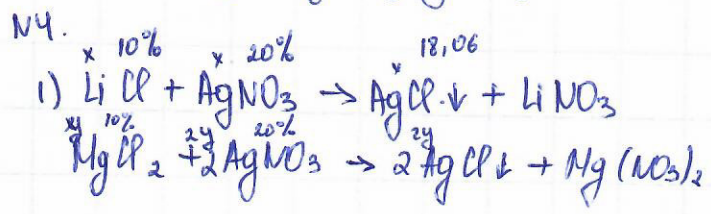 N4.
x 10% x 20% x 18,06
1) LiCl + AgNO₃ → AgCl↓ + LiNO₃
y 10% 2y 20% 2y
MgCl₂ + 2AgNO₃ → 2AgCl↓ + Mg(NO₃)₂